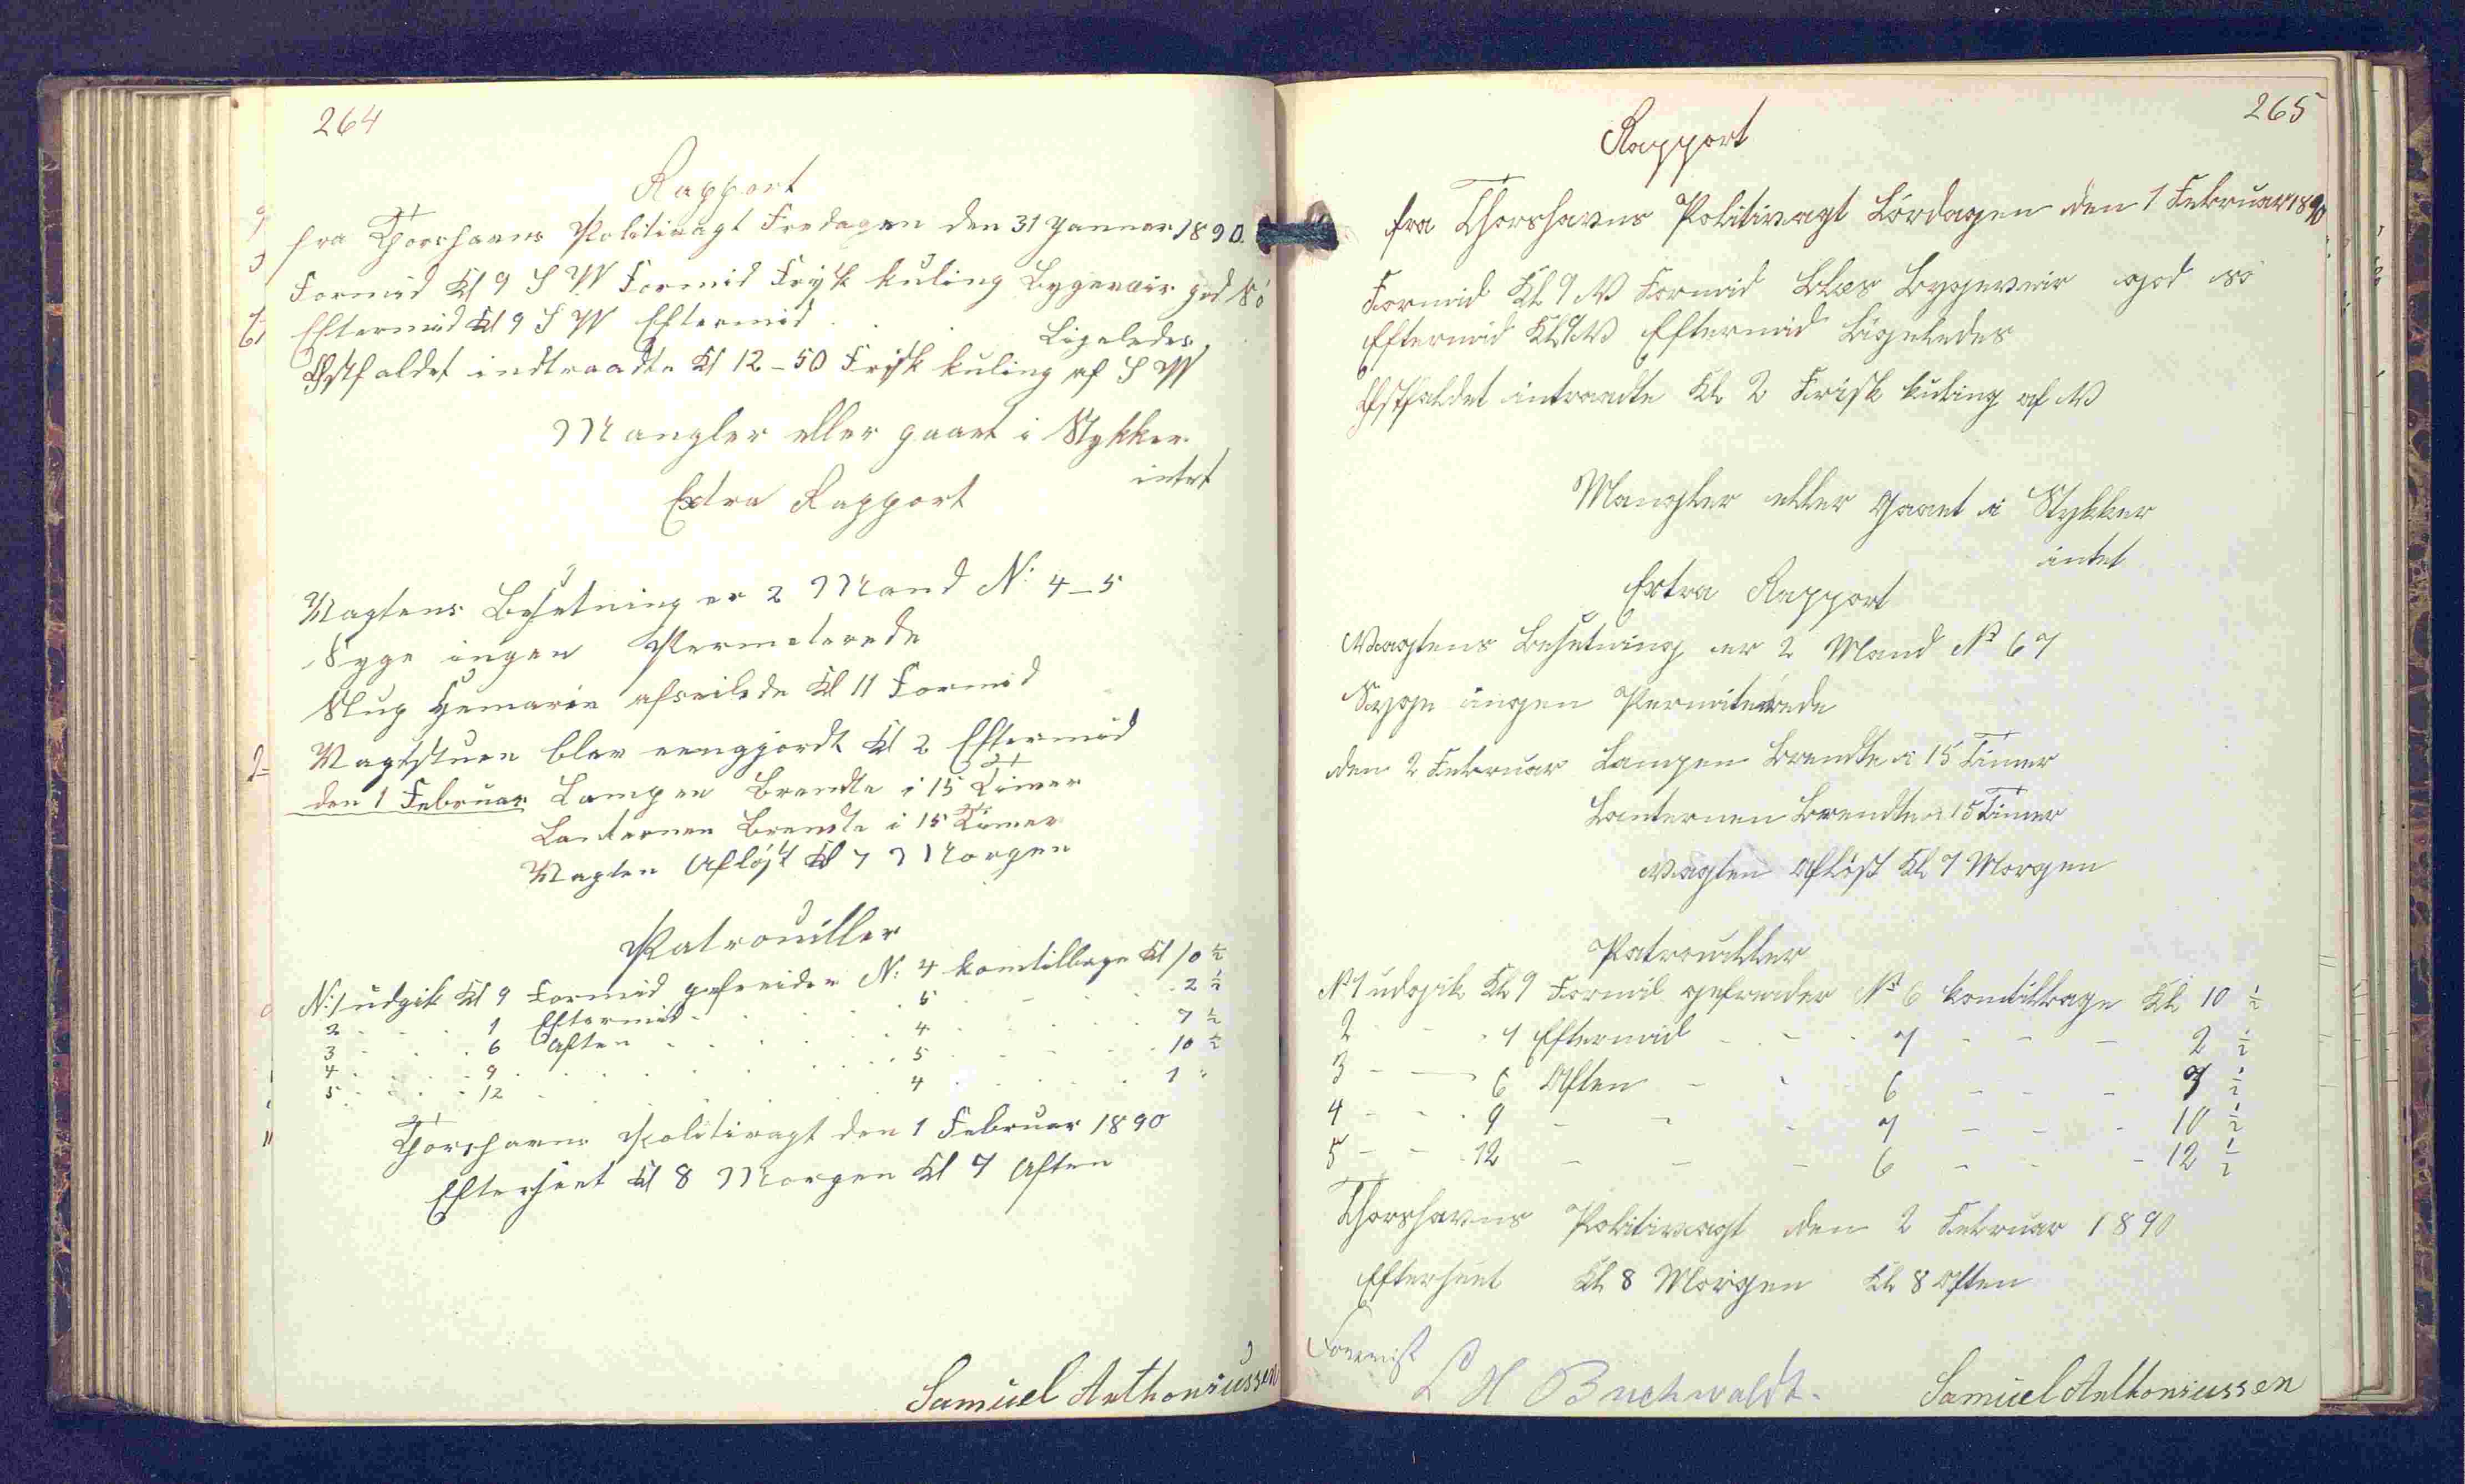 264
Rapport
fra Thorshavns Politivagt Fredagen den 31 Januar 1890.
Formid Kl 9 S W Formid Frisk kuling Bygevair god Sö
Eftermid Kl 9 S W Eftermid . . Ligeledes
Østfaldet indtraadte Kl 12-50 Frisk kuling af S W
Mangler eller gaaet i Stykker
intet
Extra Rapport
Vagtens Besetning er 2 Mand N: 4-5
Syge ingen Permeterede
Slup afseilede Kl 11 Formid
Vagtstuen blev reengjordt Kl 2 Eftermid
den 1 Februar Lampen Brendte i 15 Timer
Lanternen Brendte i 15 Timer
Vagten Afløst Kl 7 Morgen
Patrouiller
N: 1 udgik Kl 9 Formid gefreider N: 4 komtilbage Kl 10 ½
2 . . . 1 Eftermid . . . 5 . . . 2 ½
3 . . . 6 Aften . . . 4 . . . 7 ½
4 . . . 9 . . . 5 . . . 10 ½
5 . . . 12 . . . 4 . . . 1 "
Thorshavns Politivagt den 1 Februar 1890
Efterseet Kl 8 Morgen Kl 7 Aften
Samuel Anthoniussen
265
Rapport
fra Thorshavns Politivagt Lørdagen den 1 Februar 1890
Formid Kl 9 V Formid Blæs Bygeveir god sö
Eftermid Kl 9 V Eftermid Ligeledes
Østfaldet intraadte Kl 2 Frisk kuling af V
Mangler eller Gaaet i Stykker
intet
Extra Rapport
Vagtens Besetning er 2 Mand No 6 7
Syge ingen Permiterede
den 2 Februar Lampen Brendte i 15 Timer
Lanternen Brendte i 15 Timer
Vagten Afløst Kl 7 Morgen
Patrouiller
No 1 udgik Kl 9 Formid gefreider No 6 komtilbage Kl 10 ½
2 - - 1 Eftermid - - 7 - - - 2 ½
3 - - 6 Aften - - 6 - - - 7 ½
4 - - 9 - - - 7 - - - 10 ½
5 - - 12 - - - 6 - - - 12 ½
Thorshavns Politivagt den 2 Februar 1890
Efterseet Kl 8 Morgen Kl 8 Aften
Forevist
L H Buchwaldt.
Samuel Anthoniussen